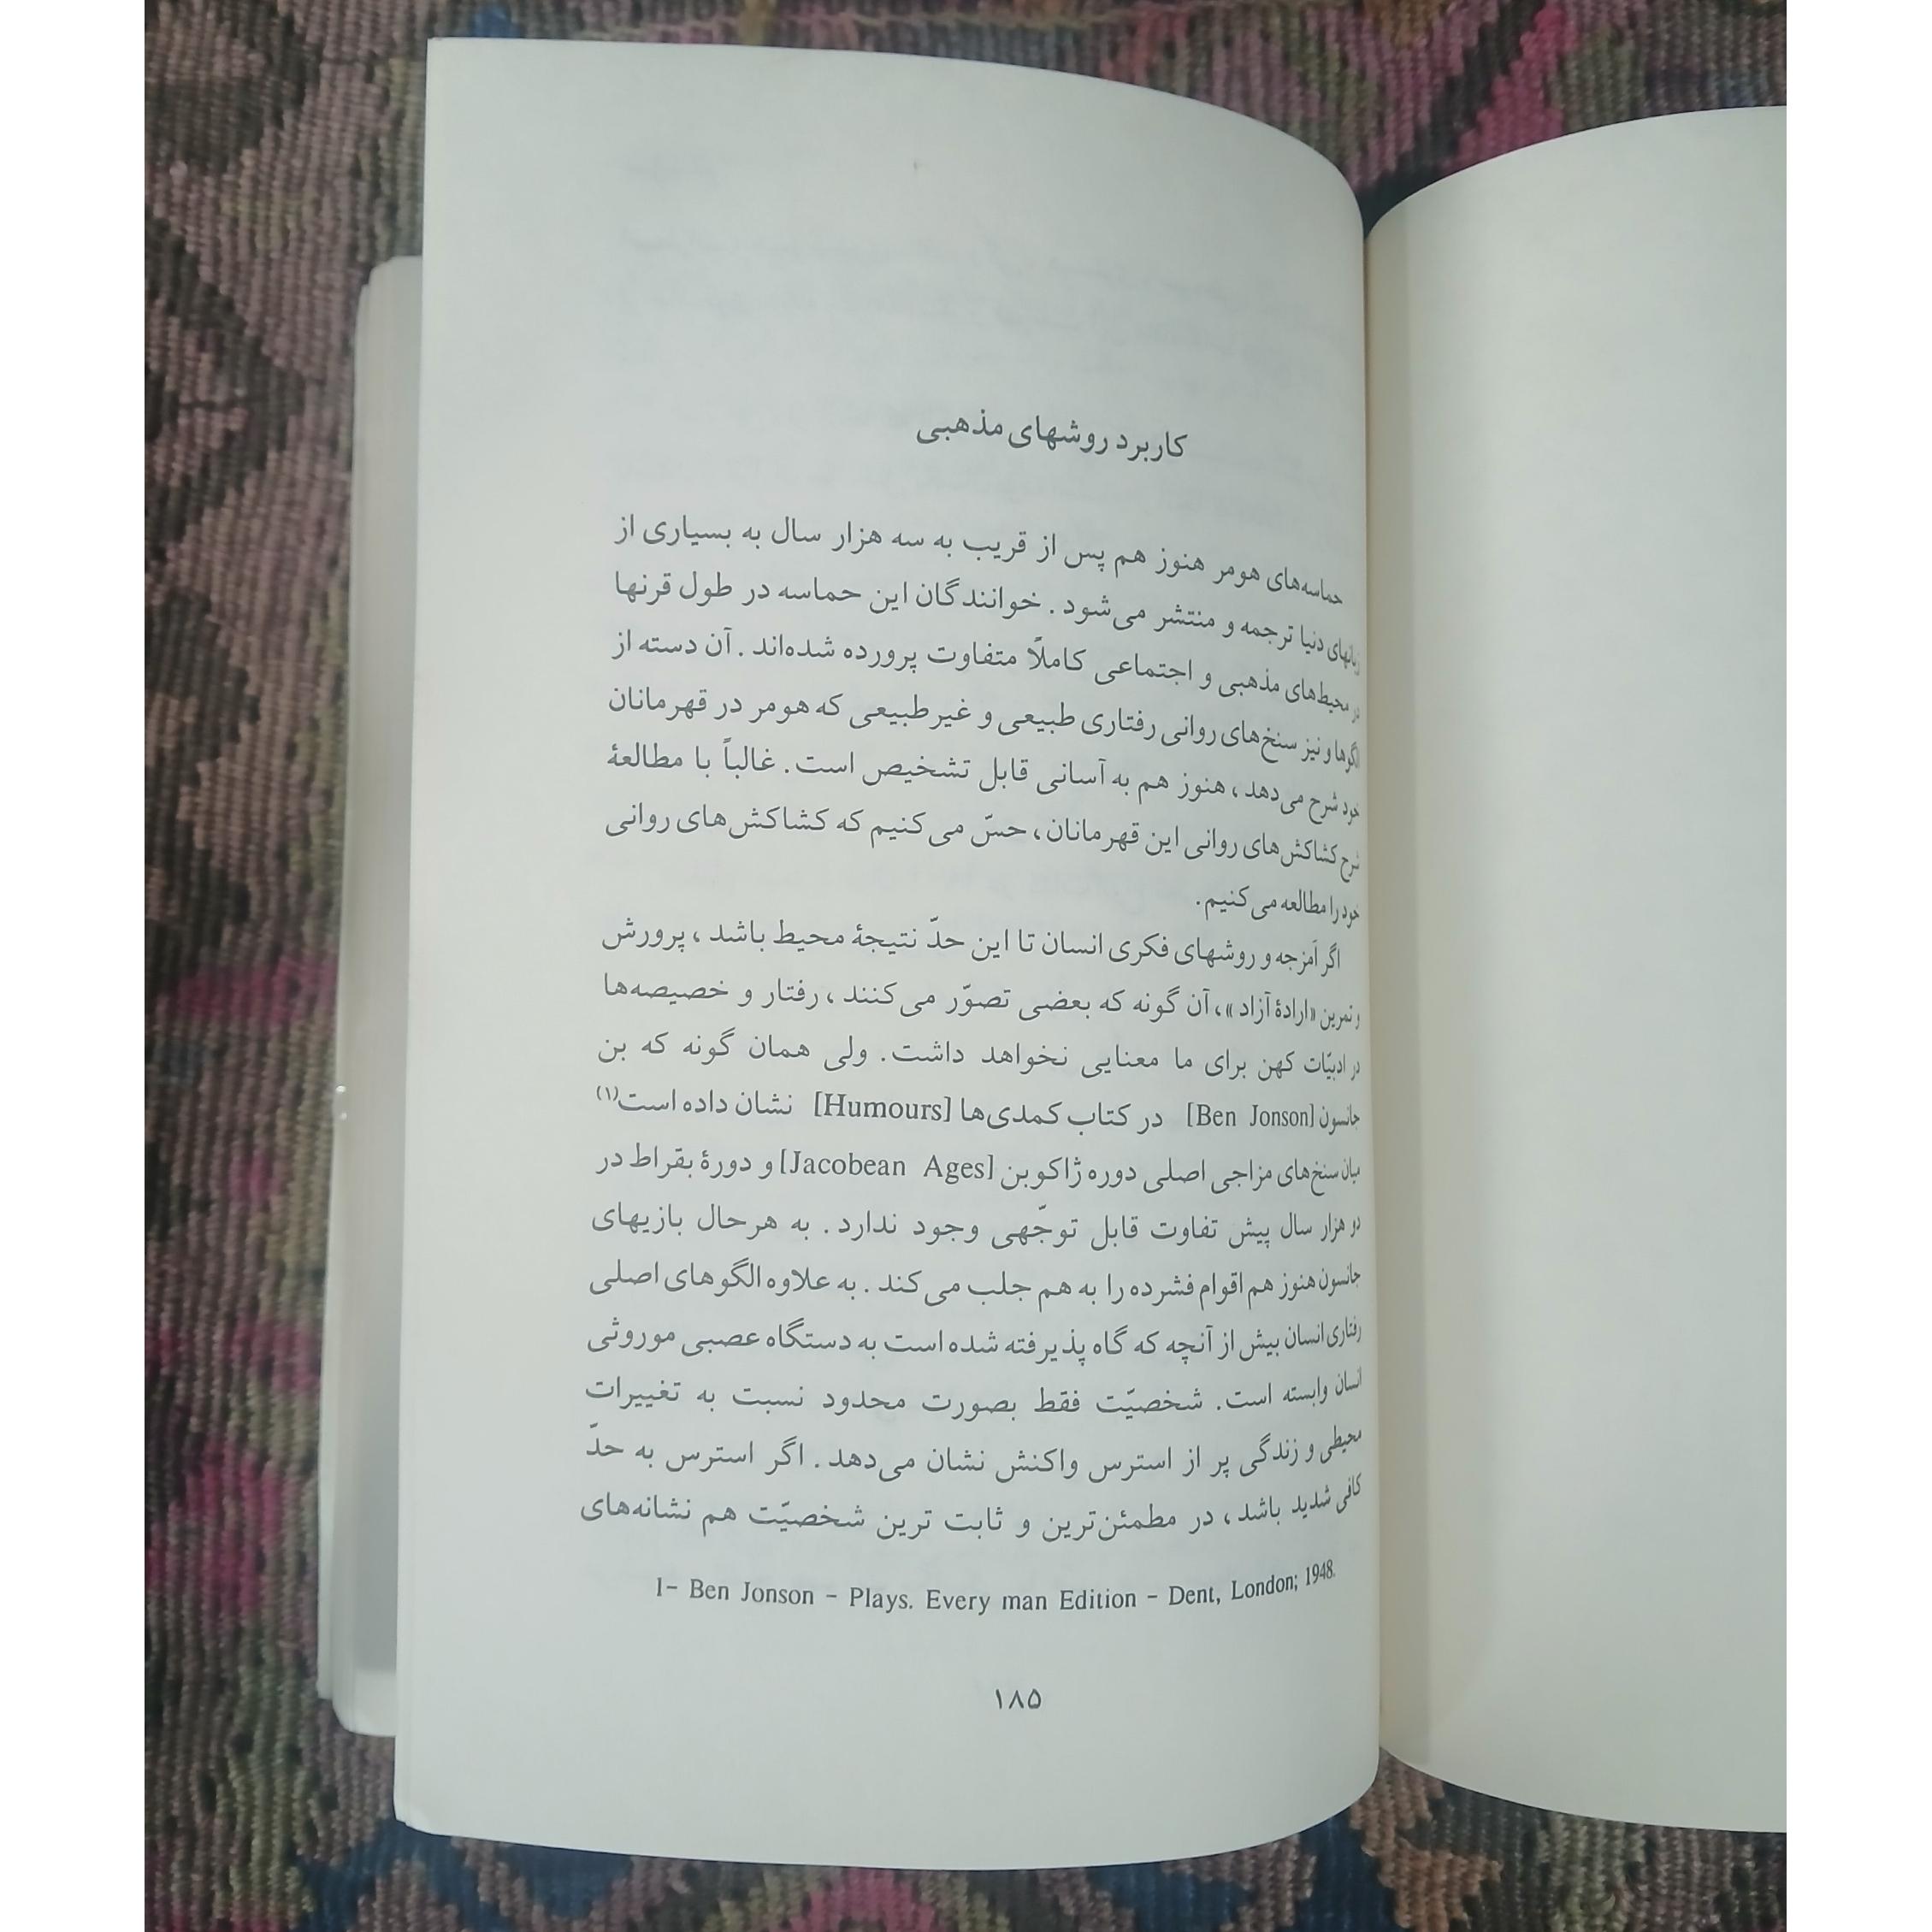 کاربرد روشهای مذهبی
حماسه‌های هومر هنوز هم پس از قریب به سه هزار سال به بسیاری از
زبانهای دنیا ترجمه و منتشر می‌شود. خوانندگان این حماسه در طول قرنها
در محیط‌های مذهبی و اجتماعی کاملاً متفاوت پرورده شده‌اند. آن دسته از
الگوها و نیز سنخ‌های روانی رفتاری طبیعی و غیرطبیعی که هومر در قهرمانان
خود شرح می‌دهد، هنوز هم به آسانی قابل تشخیص است. غالباً با مطالعهٔ
شرح کشاکش‌های روانی این قهرمانان، حسّ می‌کنیم که کشاکش‌های روانی
خود را مطالعه می‌کنیم.
اگر اَمزجه و روشهای فکری انسان تا این حدّ نتیجهٔ محیط باشد، پرورش
و تمرین «ارادهٔ آزاد»، آن گونه که بعضی تصوّر می‌کنند، رفتار و خصیصه‌ها
در ادبیّات کهن برای ما معنایی نخواهد داشت. ولی همان گونه که بن
جانسون [Ben Jonson] در کتاب کمدی‌ها [Humours] نشان داده است(۱)
میان سنخ‌های مزاجی اصلی دوره ژاکوبن [Jacobean Ages] و دورهٔ بقراط در
دو هزار سال پیش تفاوت قابل توجّهی وجود ندارد. به هرحال بازیهای
جانسون هنوز هم اقوام فشرده را به هم جلب می‌کند. به علاوه الگوهای اصلی
رفتاری انسان بیش از آنچه که گاه پذیرفته شده است به دستگاه عصبی موروثی
انسان وابسته است. شخصیّت فقط بصورت محدود نسبت به تغییرات
محیطی و زندگی پر از استرس واکنش نشان می‌دهد. اگر استرس به حدّ
کافی شدید باشد، در مطمئن‌ترین و ثابت ترین شخصیّت هم نشانه‌های
1- Ben Jonson - Plays. Every man Edition - Dent, London; 1948.
۱۸۵